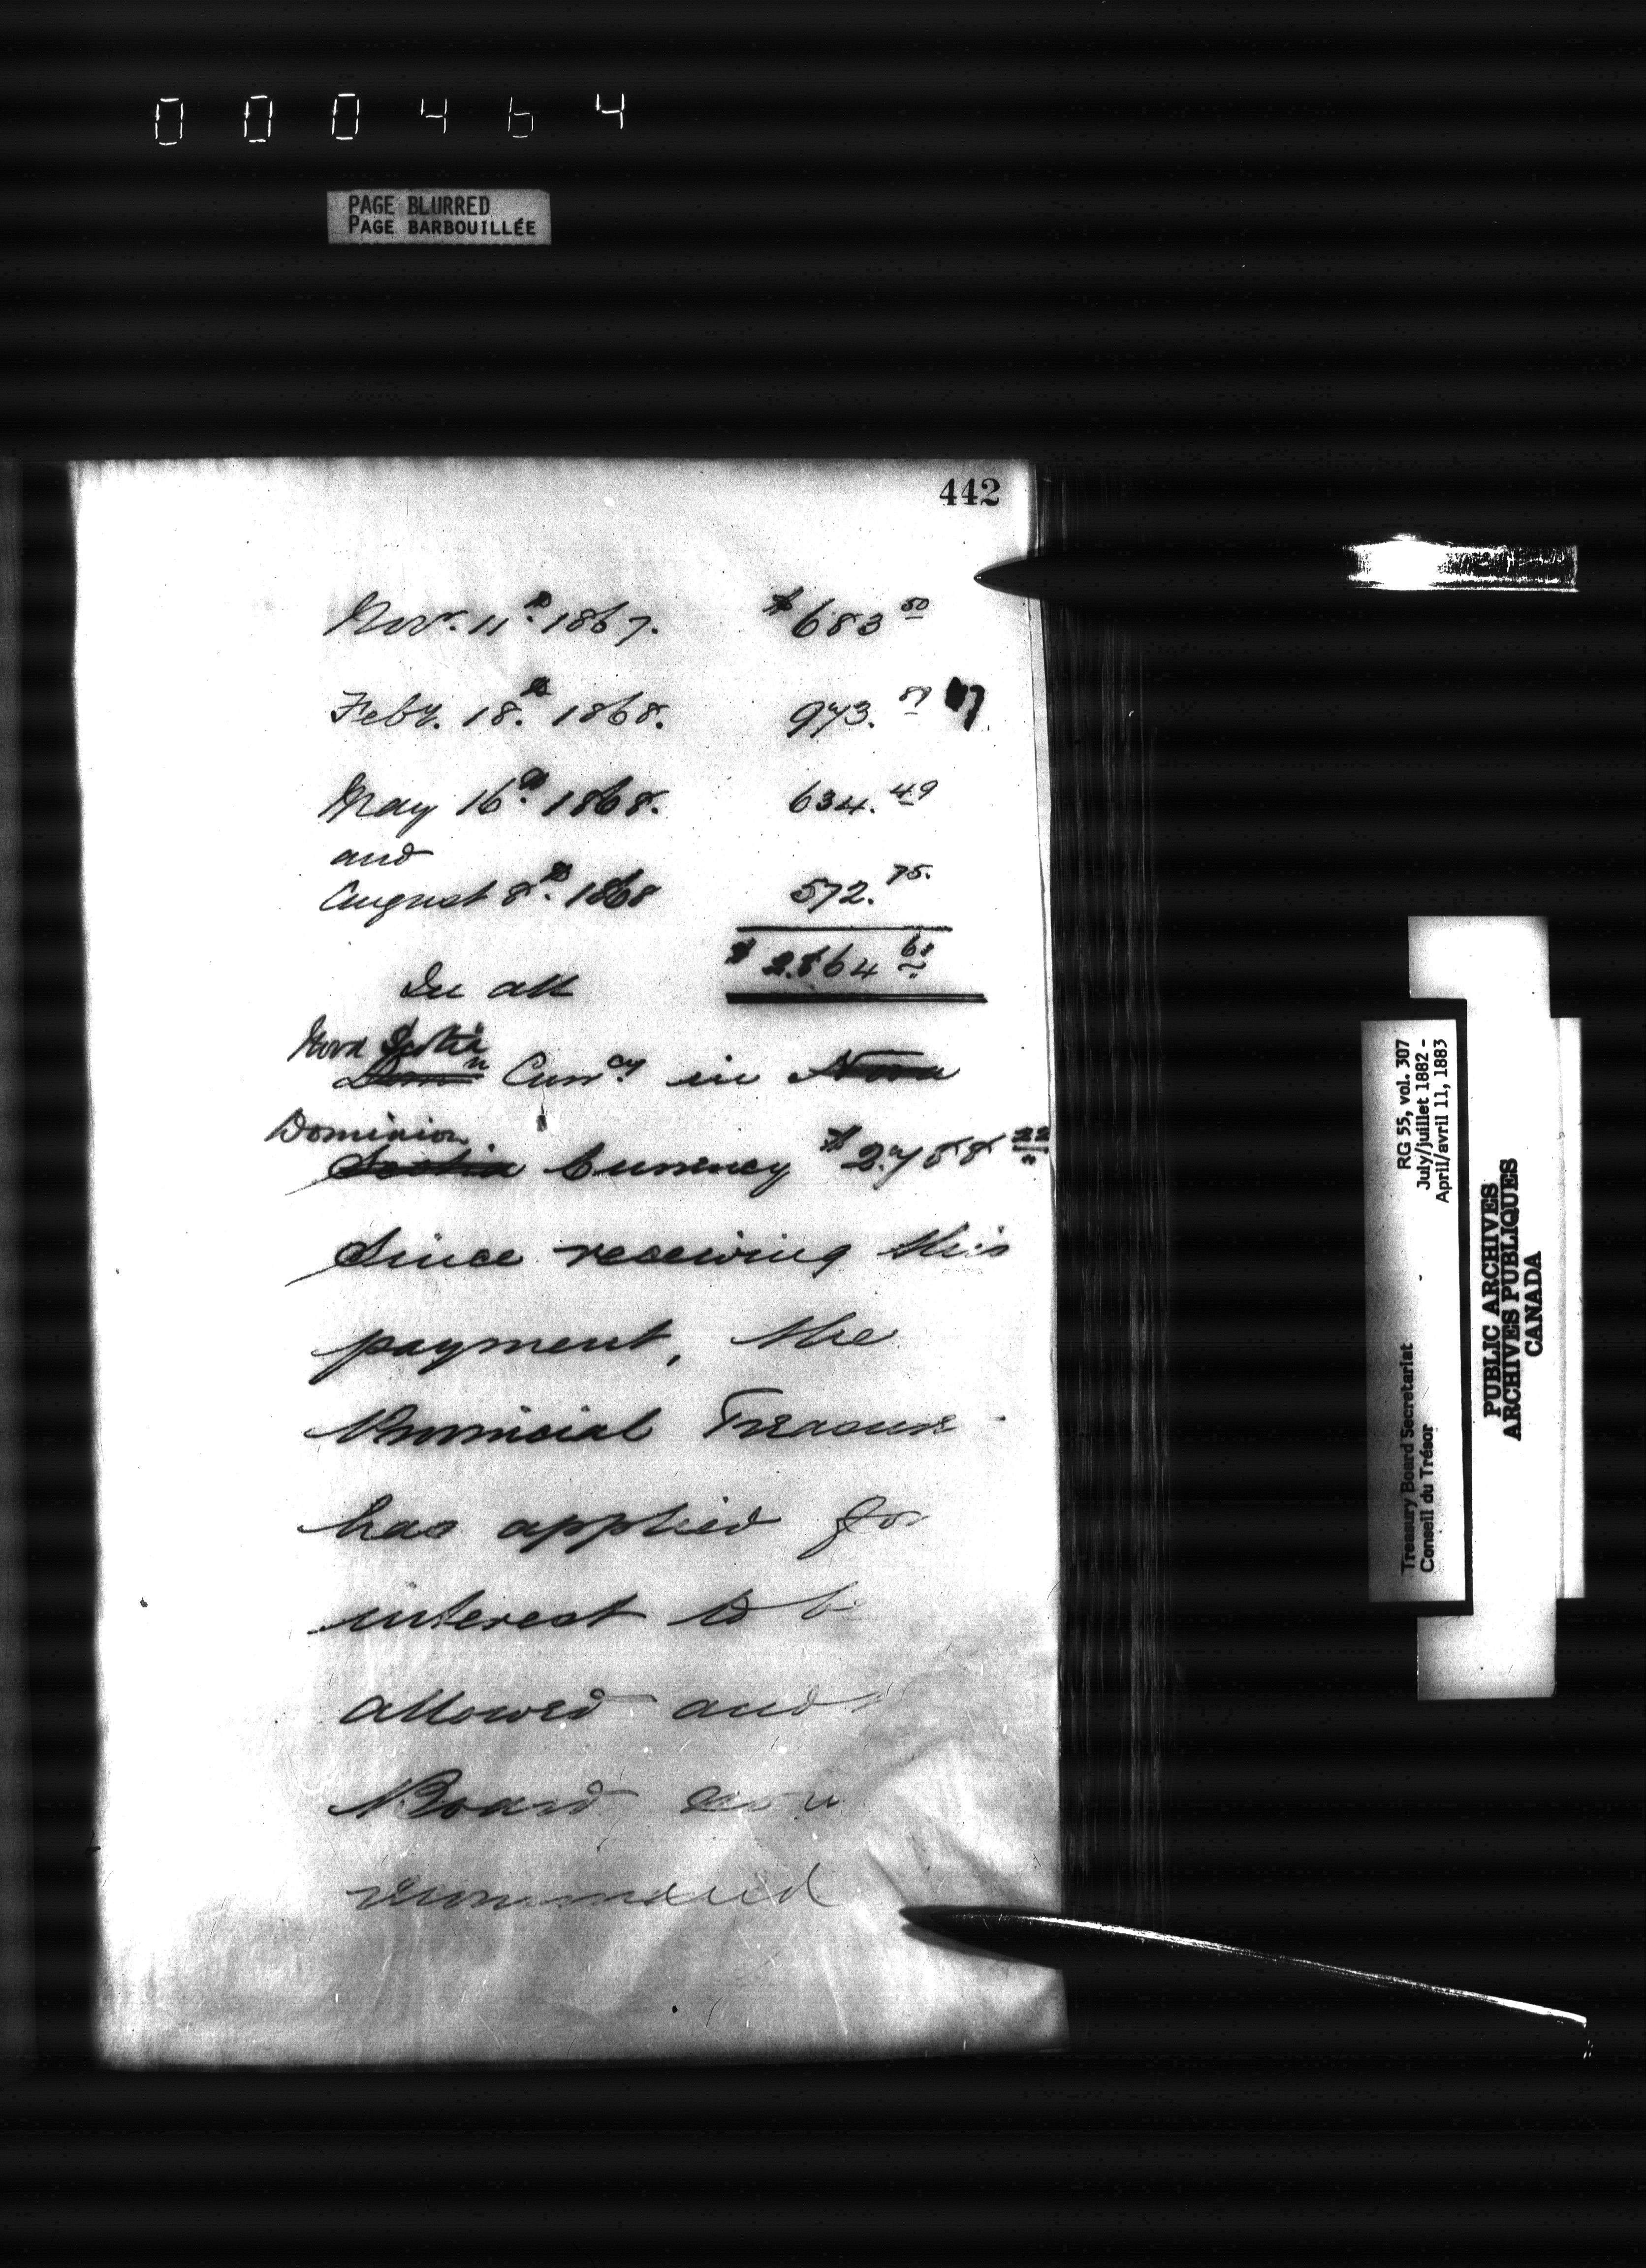 000464
PAGE BLURRED
PAGE BARBOUILLÉE
442
Nov. 11th 1867. $683 50
Feby. 18th 1868. 973. 87
May 16th 1868. 634. 49
and
August 8th 1868 572. 75.
In all $2864 61
Nova Scotia
Domn Curr.cy in Nova
Dominion
Scotia Currency $2788 22
Since receiving this
payment, the
Provincial Treasurer
has applied for
interest to be
allowed and
Board now
recommend
RG 55, vol. 307
July/juillet 1882 -
April/avril 11, 1883
Treasury Board Secretariat
Conseil du Trésor
PUBLIC ARCHIVES
ARCHIVES PUBLIQUES
CANADA